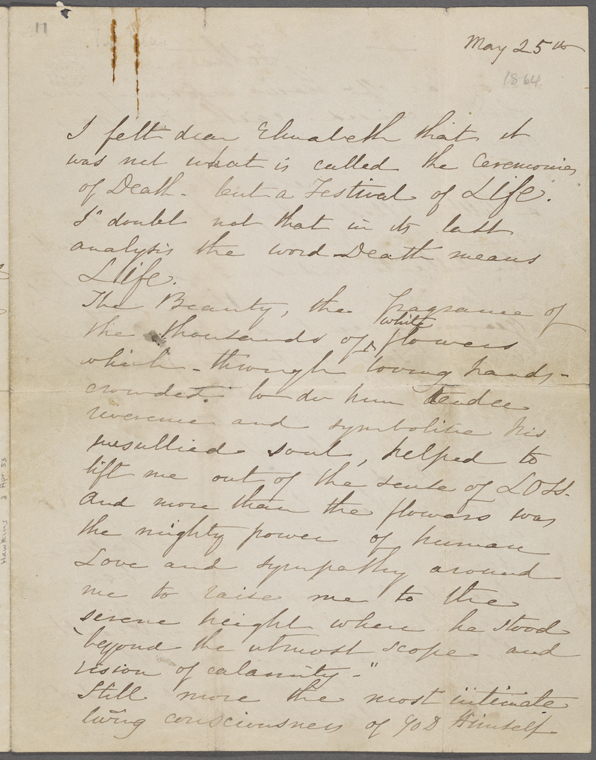 11
May 25th
1864
I felt dear Elizabeth that it
was not what is called the Ceremonies
of Death - but a Festival of Life.
I doubt not that in its last
analysis the word Death means
Life.
The Beauty, the fragrance of
white
the thousands of ^ flowers
which - through loving hands -
crowded to do him tender
reverence and symbolize his
unsullied soul, helped to
lift me out of the sense of Loss -
And more than the flowers was
the mighty power of human
Love and sympathy around
me to raise me to the
serene height where he stood
"beyond the utmost scope and
vision of calamity -"
Still more the most intimate
living consciousness of God Himself
Hawkins 2 Apr 53